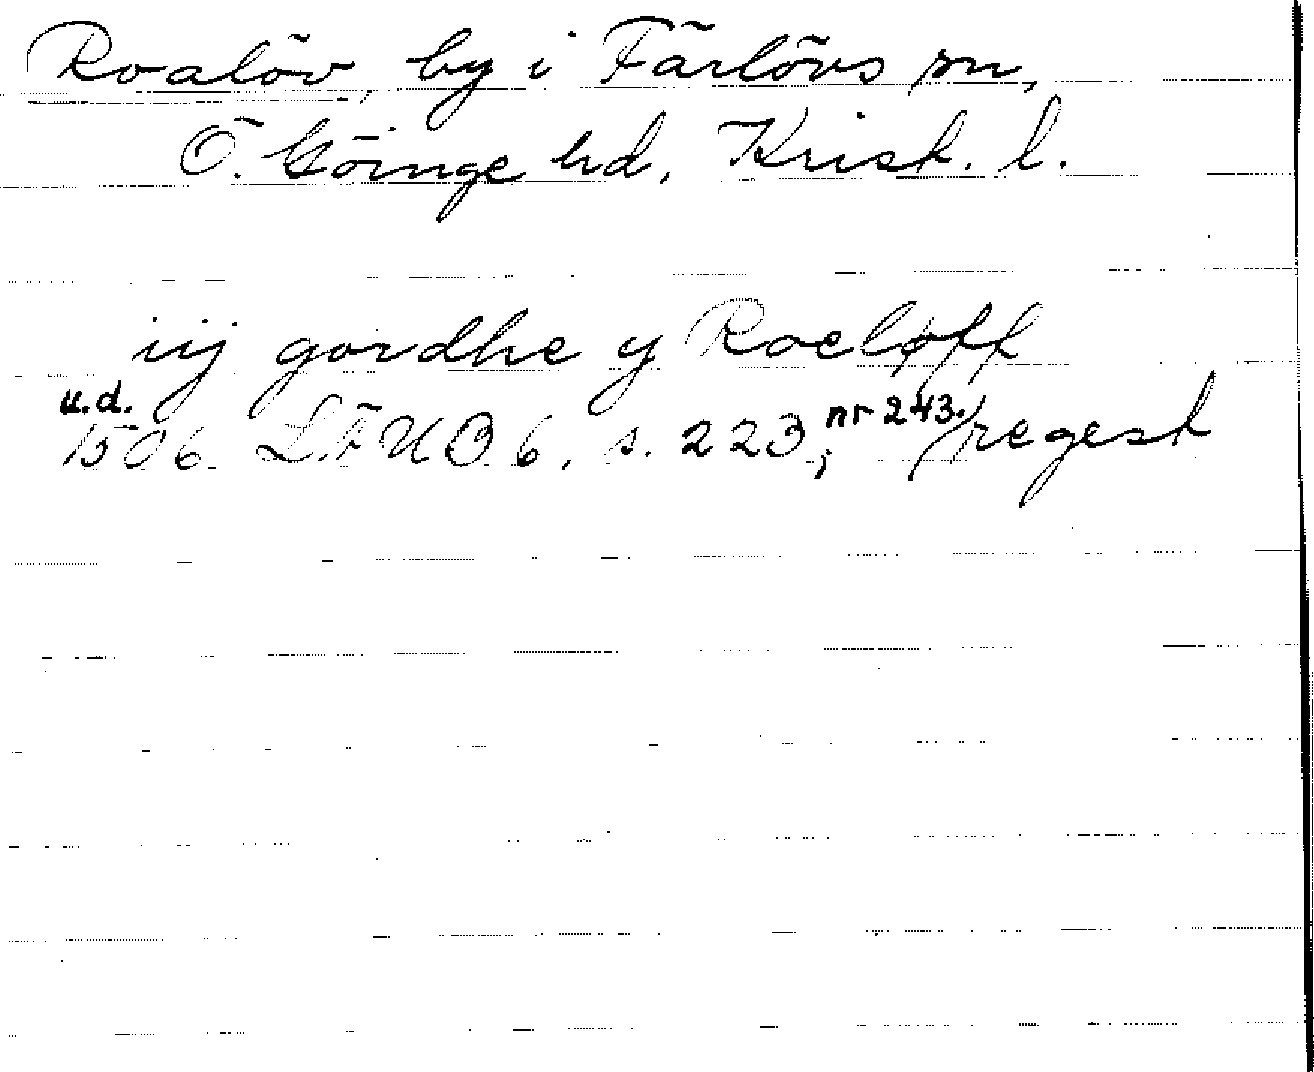 Roalöv, by i Färlövs sn,
Ö. Göinge hd, Krist. l.
iij gordhe y Roeløff
u.d.
1506. L.Å U B 6, s. 223, nr 243. regest